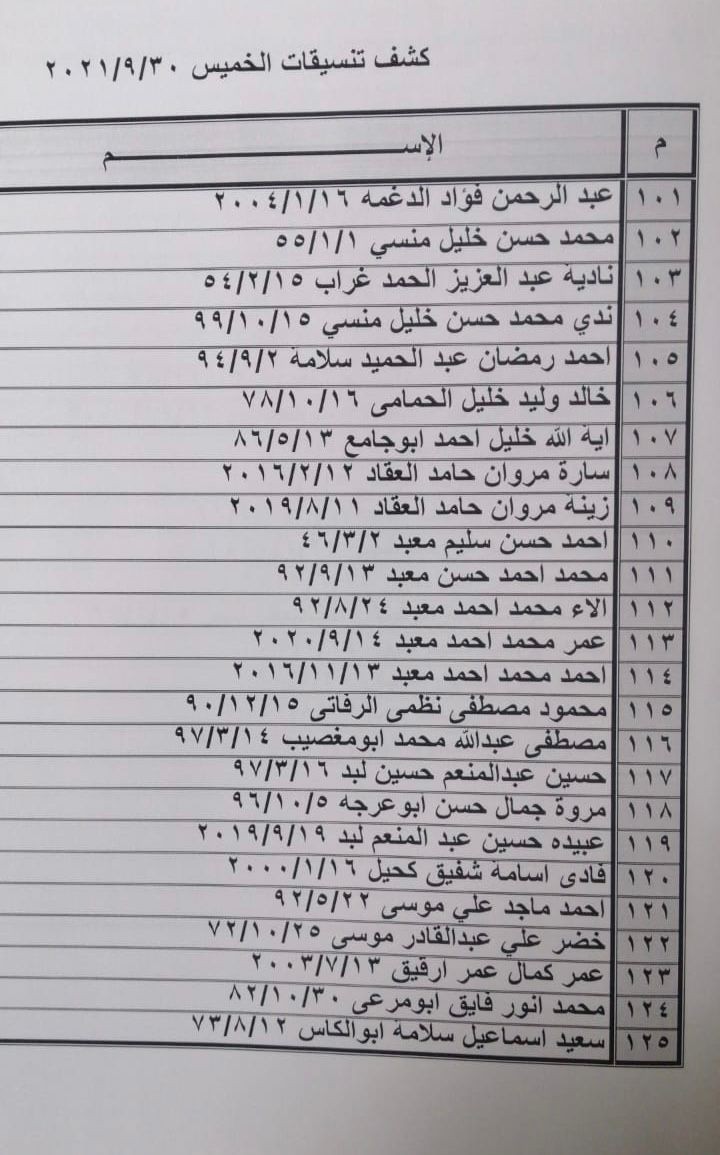 كشف تنسيقات الخميس ٢٠٢١/٩/٣٠
م الإســــــــــــــــم
١٠١ عبد الرحمن فؤاد الدغمه ٢٠٠٤/١/١٦
١٠٢ محمد حسن خليل منسي ٥٥/١/١
١٠٣ نادية عبد العزيز الحمد غراب ٥٤/٢/١٥
١٠٤ ندي محمد حسن خليل منسي ٩٩/١٠/١٥
١٠٥ احمد رمضان عبد الحميد سلامة ٩٤/٩/٢
١٠٦ خالد وليد خليل الحمامى ٧٨/١٠/١٦
١٠٧ اية الله خليل احمد ابوجامع ٨٦/٥/١٣
١٠٨ سارة مروان حامد العقاد ٢٠١٦/٢/١٢
١٠٩ زينة مروان حامد العقاد ٢٠١٩/٨/١١
١١٠ احمد حسن سليم معبد ٤٦/٣/٢
١١١ محمد احمد حسن معبد ٩٢/٩/١٣
١١٢ الاء محمد احمد معبد ٩٢/٨/٢٤
١١٣ عمر محمد احمد معبد ٢٠٢٠/٩/١٤
١١٤ احمد محمد احمد معبد ٢٠١٦/١١/١٣
١١٥ محمود مصطفى نظمى الرفاتى ٩٠/١٢/١٥
١١٦ مصطفى عبدالله محمد ابومغصيب ٩٧/٣/١٤
١١٧ حسين عبدالمنعم حسين لبد ٩٧/٣/١٦
١١٨ مروة جمال حسن ابوعرجه ٩٦/١٠/٥
١١٩ عبيده حسين عبد المنعم لبد ٢٠١٩/٩/١٩
١٢٠ فادى اسامة شفيق كحيل ٢٠٠٠/١/١٦
١٢١ احمد ماجد علي موسى ٩٢/٥/٢٢
١٢٢ خضر علي عبدالقادر موسي ٧٢/١٠/٢٥
١٢٣ عمر كمال عمر ارقيق ٢٠٠٣/٧/١٣
١٢٤ محمد انور فايق ابومرعى ٨٢/١٠/٣٠
١٢٥ سعيد اسماعيل سلامة ابوالكاس ٧٣/٨/١٢